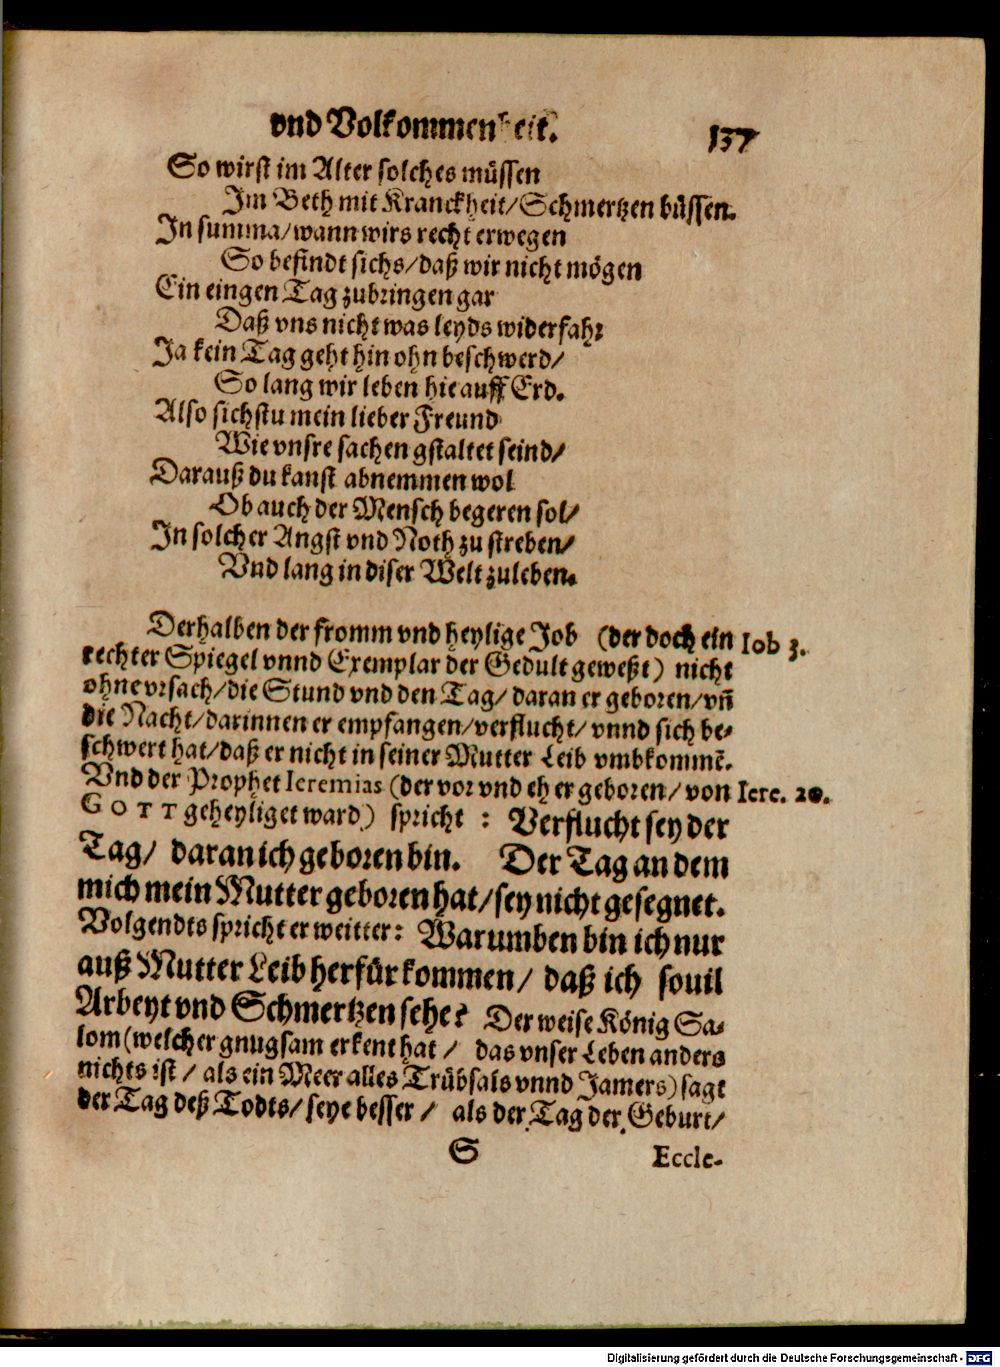 vnd Volkommenheit. 137
So wirst im Alter solches müssen
Im Beth mit Kranckheit/Schmertzen büssen.
In summa/wann wirs recht erwegen
So befindt sichs/daß wir nicht mögen
Ein eingen Tag zubringen gar
Daß vns nicht was leyds widerfahr
Ja kein Tag geht hin ohn beschwerd/
So lang wir leben hie auff Erd.
Also sichstu mein lieber Freund
Wie vnsre sachen gstaltet seind/
Darauß du kanst abnemmen wol
Ob auch der Mensch begeren sol/
In solcher Angst vnd Noth zu streben/
Vnd lang in diser Welt zuleben.
Derhalben der fromm vnd heylige Job (der doch ein Iob 3.
rechter Spiegel vnnd Exemplar der Gedult geweßt) nicht
ohne vrsach/die Stund vnd den Tag/ daran er geboren/vñ
die Nacht/darinnen er empfangen/verflucht/vnnd sich be-
schwert hat/daß er nicht in seiner Mutter Leib vmbkommẽ.
Vnd der Prophet Ieremias (der vor vnd eh er geboren/ von Iere. 20.
GOTT geheyliget ward) spricht : Verflucht sey der
Tag/ daran ich geboren bin. Der Tag an dem
mich mein Mutter geboren hat/sey nicht gesegnet.
Volgendts spricht er weitter: Warumben bin ich nur
auß Mutter Leib herfür kommen/ daß ich souil
Arbeyt vnd Schmertzen sehe? Der weise König Sa-
lom(welcher gnugsam erkent hat / das vnser Leben anders
nichts ist / als ein Meer alles Trübsals vnnd Jamers) sagt
der Tag deß Todts/ seye besser / als der Tag der Geburt/
S Eccle-
Digitalisierung gefördert durch die Deutsche Forschungsgemeinschaft - DFG